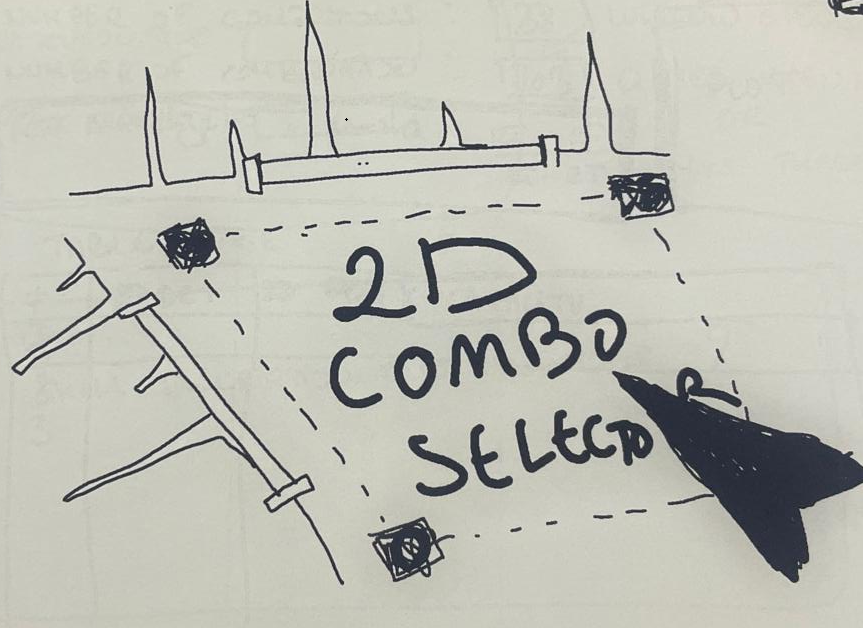 2D
COMBO
SELECTOR